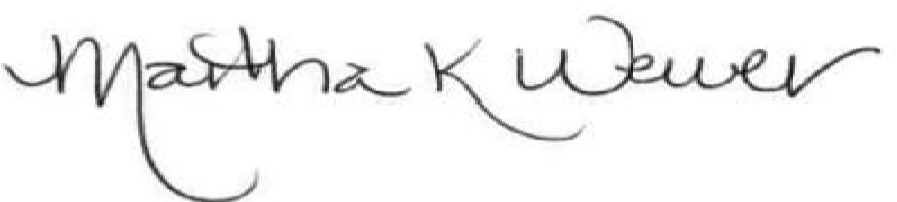 Martha K Wewer